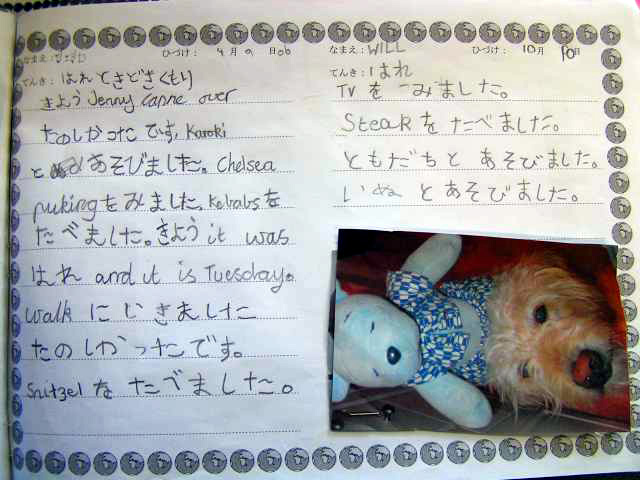 なまえ：
ひづけ： 9月 9日
てんき：はれ ときどきくもり
きょう Jenny came over
たのしかったです。Karoki
と あそびました。Chelsea
puking をみました。Kebabs を
たべました。きょう it was
はれ and it is Tuesday。
Walk にいきました
たのしかったです。
Snitzel を たべました。
なまえ：WILL
ひづけ： 10月 10日
てんき：はれ
TV を みました。
Steak を たべました。
ともだちと あそびました。
いぬ とあそびました。